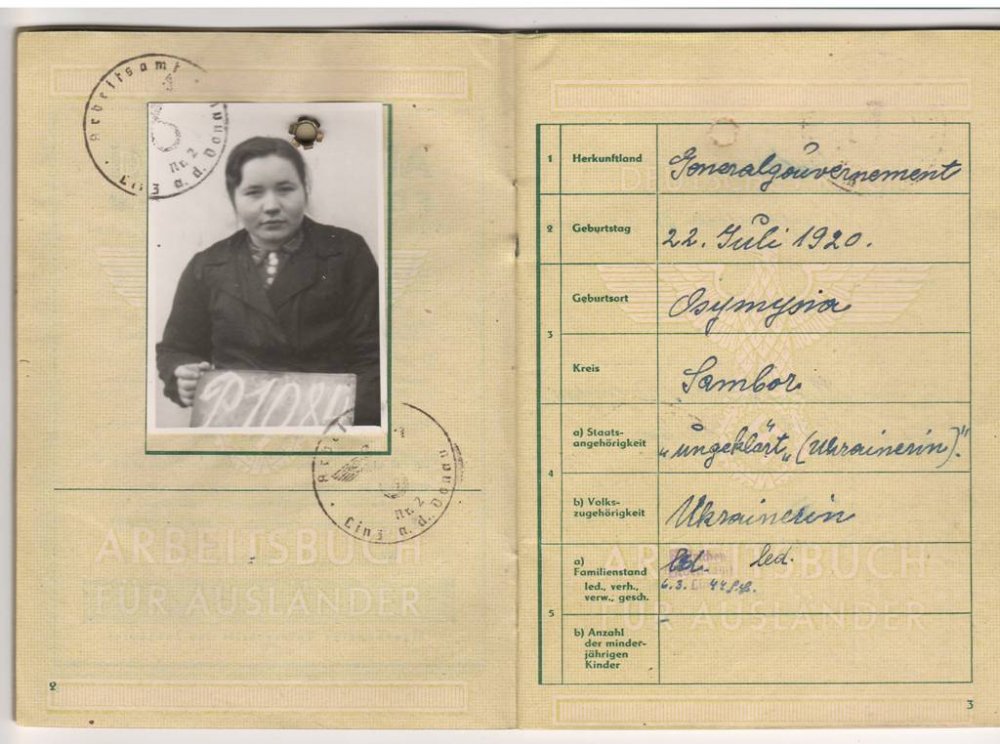 Arbeitsamt
Nr. 2
Linz a. d. Donau
Nr. 2
Linz a. d. Donau
ARBEITSBUCH
FÜR AUSLÄNDER
2
1 Herkunftland Generalgouvernement
2 Geburtstag 22. Juli 1920.
3 Geburtsort Osymysia
Kreis Sambor
4 a) Staats-
angehörigkeit „ungeklärt„ (Ukrainerin)."
b) Volks-
zugehörigkeit Ukrainerin
5 a)
Familienstand led. led.
led., verh.,
verw., gesch. 6.3.
b) Anzahl
der minder-
jährigen
Kinder
ARBEITSBUCH
FÜR AUSLÄNDER
3